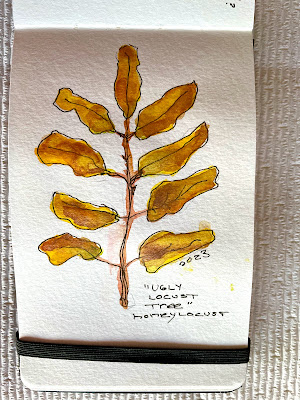 2023
"UGLY
LOCUST
TREE"
HONEYLOCUST